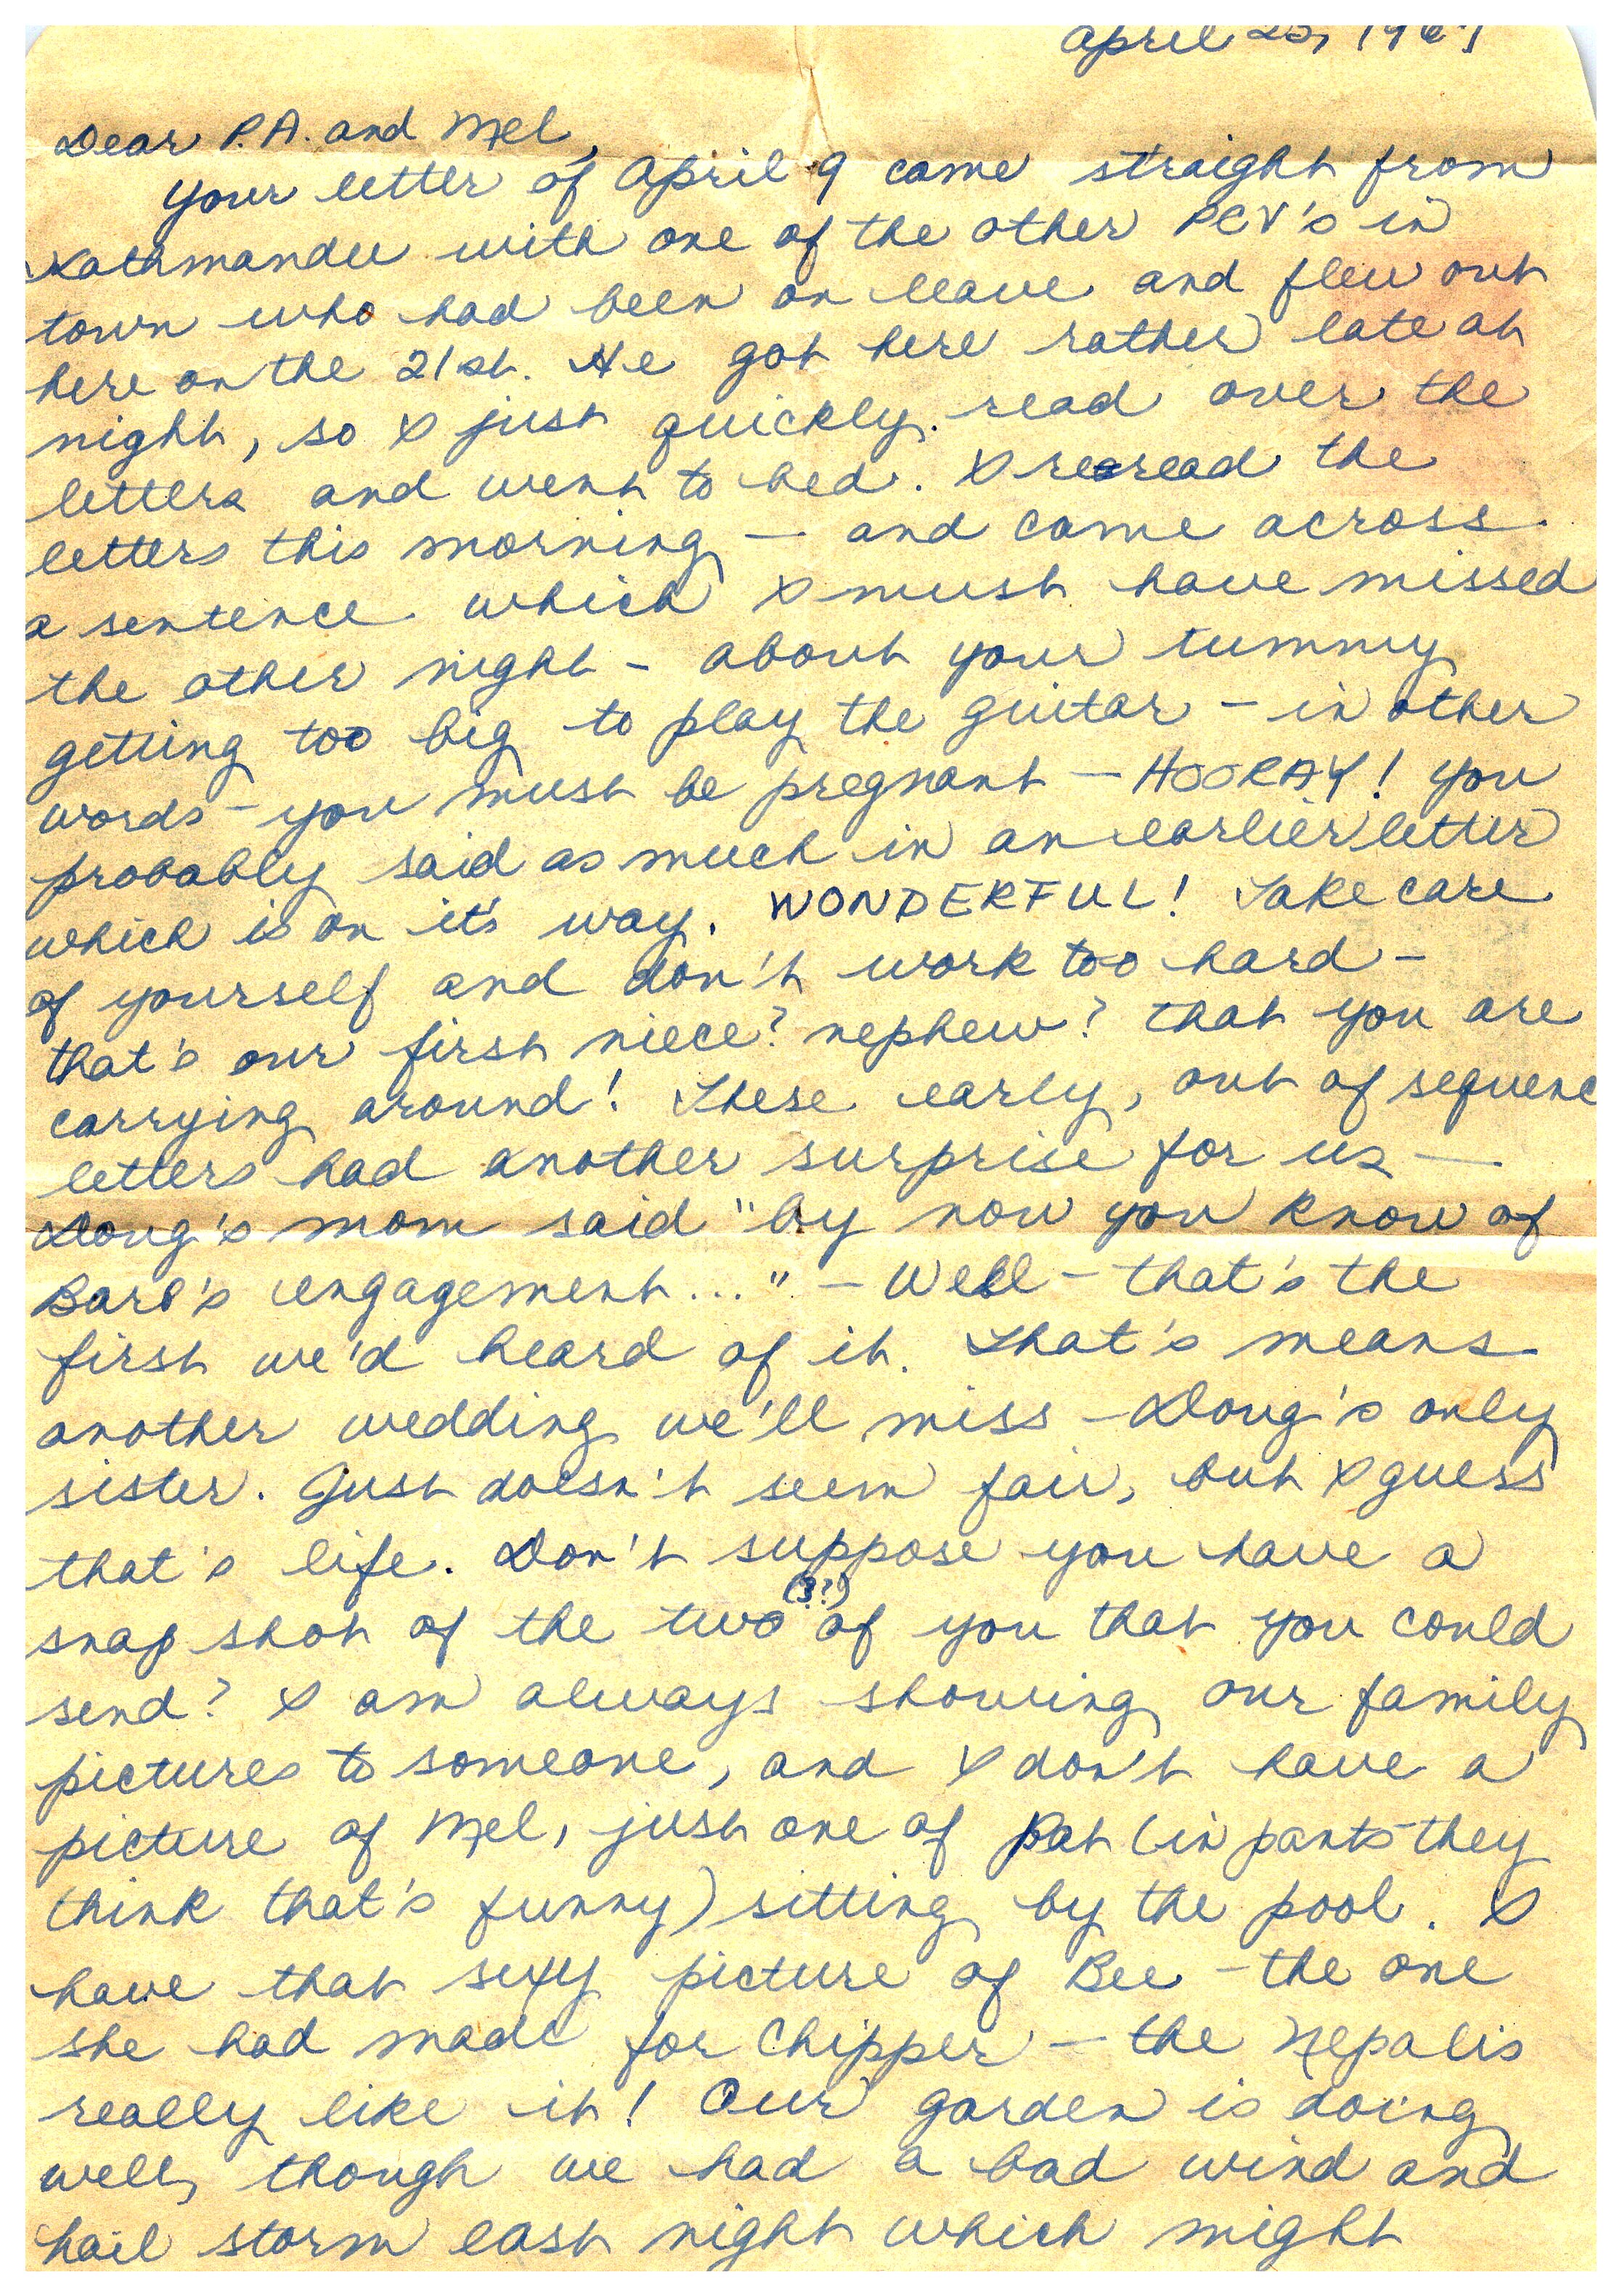 April 25, 1967
Dear P.A. and Mel,
Your letter of April 9 came straight from
Kathmandu with one of the other PCV's in
town who had been on leave and flew out
here on the 21st. He got here rather late at
night, so I just quickly read over the
letters and went to bed. I reread the
letters this morning — and came across
a sentence which I must have missed
the other night - about your tummy
getting too big to play the guitar - in other
words - you must be pregnant - HOORAY! You
probably said as much in an earlier letter
which is on it's way. WONDERFUL! Take care
of yourself and don't work too hard -
that's our first niece? nephew? that you are
carrying around! These early, out of sequenc
letters had another surprise for us —
Doug's mom said "by now you know of
Barb's engagement..." - Well - that's the
first we'd heard of it. That's means
another wedding we'll miss - Doug's only
sister. Just doesn't seem fair, but I guess
that's life. Don't suppose you have a
(3??)
snap shot of the two of you that you could
send? I am always showing our family
pictures to someone, and I don't have a
picture of Mel, just one of Pat (in pants they
think that's funny) sitting by the pool. I
have that sexy picture of Bee - the one
she had made for Chipper - the Nepalis
really like it! Our garden is doing
well, though we had a bad wind and
hail storm last night which might